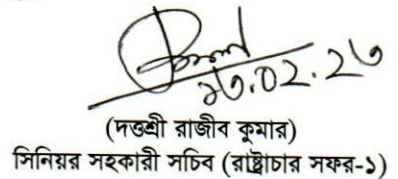 (দত্তশ্রী রাজীব কুমার)
সিনিয়র সহকারী সচিব (রাষ্ট্রাচার সফর-১)